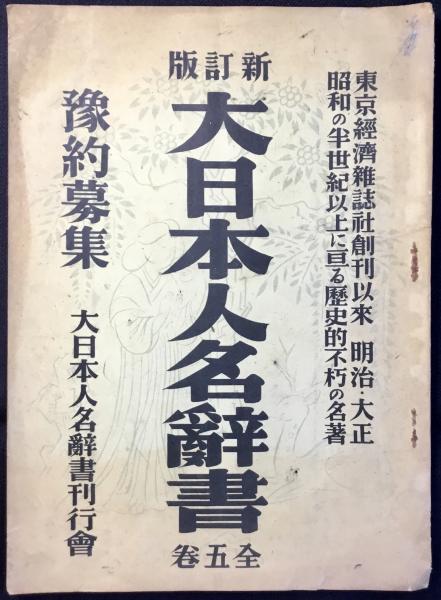 東京經濟雜誌社創刊以來 明治・大正
昭和の半世紀以上に亘る歷史的不朽の名著
新訂版
大日本人名辭書
全五卷
豫約募集
大日本人名辭書刊行會